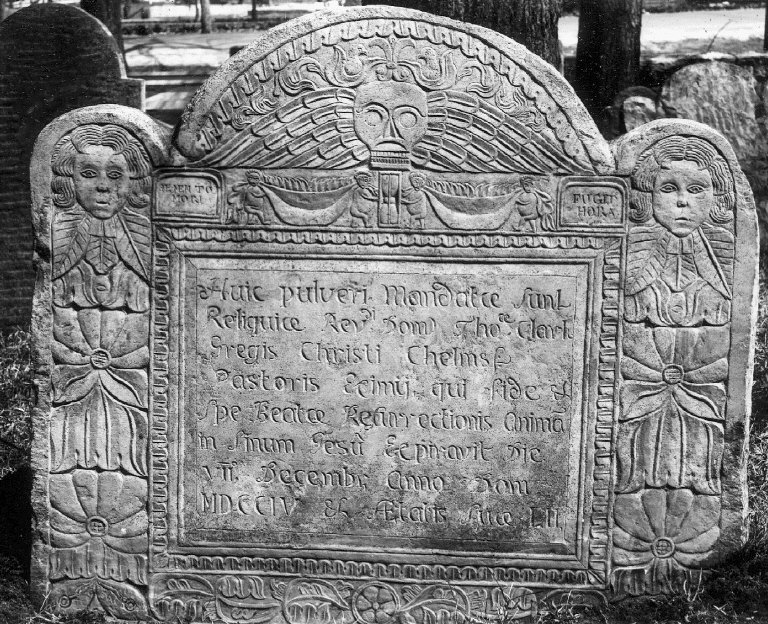 MEMENTO
MORI
FUGIT
HORA
Huic pulveri Mandatæ sunt
Reliquiæ Revdi Domi Thoæ Clark
Gregis Christi Chelmsf
Pastoris Eximij qui fide &
spe Beatæ Resurrectionis Animā
in Sinum Jesū Expiravit Die
VII Decembr Anno Dom
MDCCIV & Ætatis suæ LII